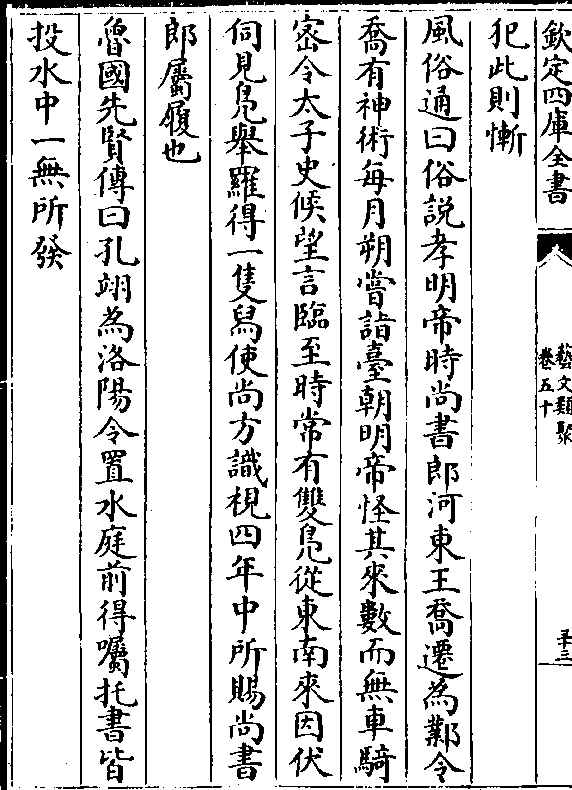 欽定四庫全書
藝文類聚
卷五十
三
犯此則慚
風俗通曰俗說孝明帝時尚書郎河東王喬遷為鄴令
喬有神術每月朔嘗詣臺朝明帝怪其來數而無車騎
密令太子史候望言臨至時常有雙鳬從東南來因伏
伺見鳬舉羅得一隻舃使尚方識視四年中所賜尚書
郎屬履也
魯國先賢傳曰孔翊為洛陽令置水庭前得囑托書皆
投水中一無所發